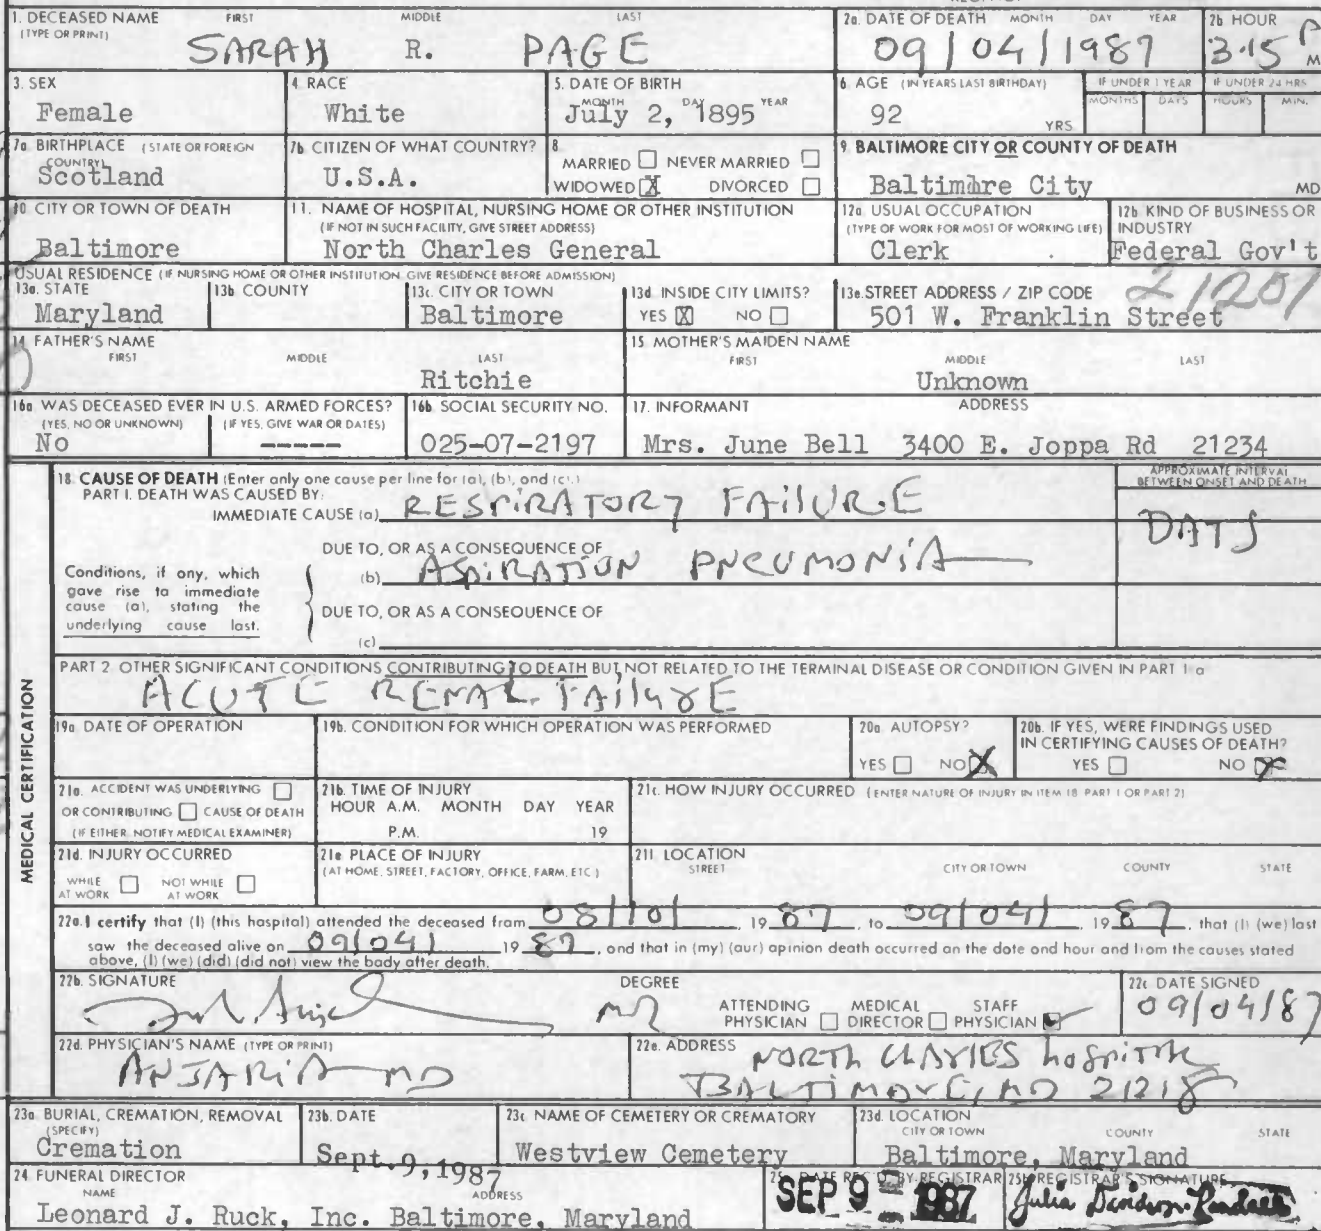 1. DECEASED NAME FIRST MIDDLE LAST
(TYPE OR PRINT)
SARAH R. PAGE
2a. DATE OF DEATH MONTH DAY YEAR
09/04/1987
2b HOUR
3:15 P M
3. SEX
Female
4. RACE
White
5. DATE OF BIRTH
MONTH DAY YEAR
July 2, 1895
6. AGE (IN YEARS LAST BIRTHDAY)
92 YRS.
IF UNDER 1 YEAR
MONTHS DAYS
IF UNDER 24 HRS
HOURS MIN.
7a. BIRTHPLACE (STATE OR FOREIGN COUNTRY)
Scotland
7b. CITIZEN OF WHAT COUNTRY?
U.S.A.
8.
MARRIED NEVER MARRIED
WIDOWED X DIVORCED
9. BALTIMORE CITY OR COUNTY OF DEATH
Baltimore City MD
10. CITY OR TOWN OF DEATH
Baltimore
11. NAME OF HOSPITAL, NURSING HOME OR OTHER INSTITUTION
(IF NOT IN SUCH FACILITY, GIVE STREET ADDRESS)
North Charles General
12a. USUAL OCCUPATION
(TYPE OF WORK FOR MOST OF WORKING LIFE)
Clerk
12b. KIND OF BUSINESS OR INDUSTRY
Federal Gov't
USUAL RESIDENCE (IF NURSING HOME OR OTHER INSTITUTION GIVE RESIDENCE BEFORE ADMISSION)
13a. STATE
Maryland
13b. COUNTY
13c. CITY OR TOWN
Baltimore
13d. INSIDE CITY LIMITS?
YES X NO
13e. STREET ADDRESS / ZIP CODE
21201
501 W. Franklin Street
14. FATHER'S NAME
FIRST MIDDLE LAST
Ritchie
15. MOTHER'S MAIDEN NAME
FIRST MIDDLE LAST
Unknown
16a. WAS DECEASED EVER IN U.S. ARMED FORCES?
(YES, NO OR UNKNOWN) (IF YES, GIVE WAR OR DATES)
No -----
16b. SOCIAL SECURITY NO.
025-07-2197
17. INFORMANT ADDRESS
Mrs. June Bell 3400 E. Joppa Rd 21234
MEDICAL CERTIFICATION
18. CAUSE OF DEATH (Enter only one cause per line for (a), (b), and (c).)
PART I. DEATH WAS CAUSED BY:
IMMEDIATE CAUSE (a) RESPIRATORY FAILURE
APPROXIMATE INTERVAL BETWEEN ONSET AND DEATH
DAYS
DUE TO, OR AS A CONSEQUENCE OF
(b) ASPIRATION PNEUMONIA
Conditions, if any, which
gave rise to immediate
cause (a), stating the
underlying cause last.
DUE TO, OR AS A CONSEQUENCE OF
(c)
PART 2. OTHER SIGNIFICANT CONDITIONS CONTRIBUTING TO DEATH BUT NOT RELATED TO THE TERMINAL DISEASE OR CONDITION GIVEN IN PART 1 a
ACUTE RENAL FAILURE
19a. DATE OF OPERATION
19b. CONDITION FOR WHICH OPERATION WAS PERFORMED
20a. AUTOPSY?
YES NO X
20b. IF YES, WERE FINDINGS USED
IN CERTIFYING CAUSES OF DEATH?
YES NO X
21a. ACCIDENT WAS UNDERLYING
OR CONTRIBUTING CAUSE OF DEATH
(IF EITHER, NOTIFY MEDICAL EXAMINER)
21b. TIME OF INJURY
HOUR A.M. MONTH DAY YEAR
P.M. 19
21c. HOW INJURY OCCURRED (ENTER NATURE OF INJURY IN ITEM 18 PART 1 OR PART 2)
21d. INJURY OCCURRED
WHILE AT WORK NOT WHILE AT WORK
21e. PLACE OF INJURY
(AT HOME, STREET, FACTORY, OFFICE, FARM, ETC.)
21f. LOCATION
STREET CITY OR TOWN COUNTY STATE
22a. I certify that (I) (this hospital) attended the deceased from 08/10/ 19 87, to 09/04/ 19 87, that (I) (we) last
saw the deceased alive on 09/04/ 19 87, and that in (my) (our) opinion death occurred on the date and hour and from the causes stated
above, (I) (we) (did) (did not) view the body after death.
22b. SIGNATURE
DEGREE
MD
ATTENDING PHYSICIAN MEDICAL DIRECTOR STAFF PHYSICIAN
22c. DATE SIGNED
09/04/87
22d. PHYSICIAN'S NAME (TYPE OR PRINT)
ANJARIA MD
22e. ADDRESS
NORTH CHARLES hospital
BALTIMORE, MD 21218
23a. BURIAL, CREMATION, REMOVAL
(SPECIFY)
Cremation
23b. DATE
Sept.9,1987
23c. NAME OF CEMETERY OR CREMATORY
Westview Cemetery
23d. LOCATION
CITY OR TOWN COUNTY STATE
Baltimore, Maryland
24. FUNERAL DIRECTOR
NAME ADDRESS
Leonard J. Ruck, Inc. Baltimore, Maryland
25a. DATE REC'D. BY REGISTRAR
SEP 9 1987
25b. REGISTRAR'S SIGNATURE
Julia Davidson-Randall